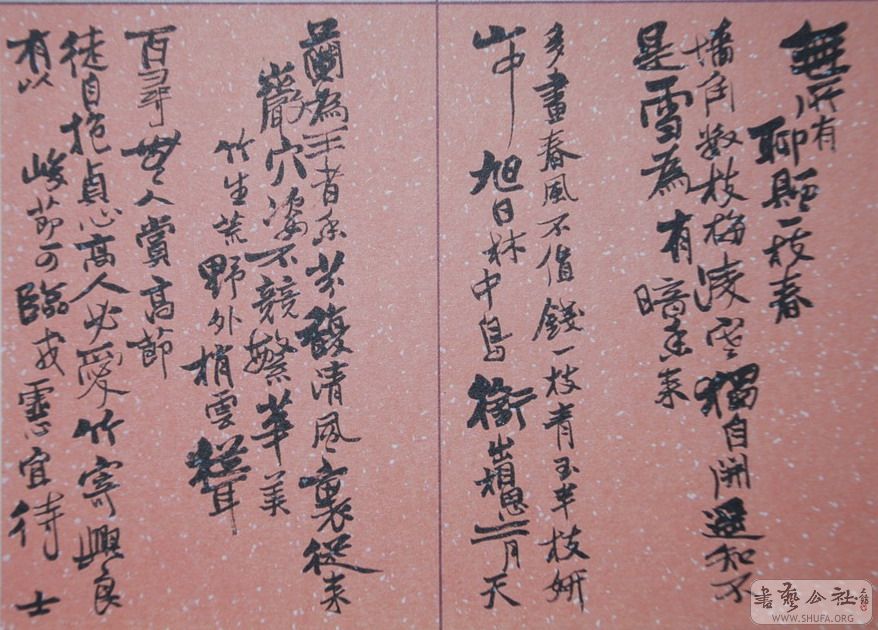 無所有
聊贈一枝春
墻角數枝梅凌寒獨自開遥知不
是雪為有暗香來
多畫春風不值錢一枝青玉半枝妍
山中旭日林中鳥銜出相思二月天
蘭為王者香芬馥清風裏從来
巖穴姿不競繁華美
竹生荒野外梢雲聳
百尋無人賞高節
徒自抱貞心高人必愛竹寄興良
有以 峻節可臨戎虛心宜待士
書藝公社
WWW.SHUFA.ORG